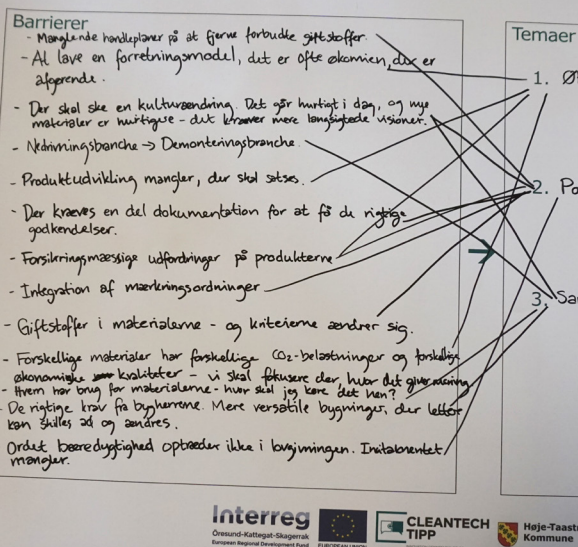 Barrierer
- Manglende handleplaner på at fjerne forbudte giftstoffer.
- At lave en forretningsmodel, det er ofte økomien, der er
afgørende.
- Der skal ske en kulturændring. Det går hurtigt i dag, og nye
materialer er hurtigere - det kræver mere langsigtede visioner.
- Nedrivningsbranche → Demonteringsbranche
- Produktudvikling mangler, der skal satses.
- Der kræves en del dokumentation for at få de rigtige
godkendelser.
- Forsikringsmæssige udfordringer på produkterne
- Integration af mærkningsordninger
- Giftstoffer i materialerne - og kriterierne ændrer sig.
- Forskellige materialer har forskellige CO2-belastninger og forskellige
økonomiske kvaliteter - vi skal fokusere der hvor det giver mening
- Hvem har brug for materialerne - hvor skal jeg køre det hen?
- De rigtige krav fra bygherrerne. Mere versatile bygninger, der lettere
kan skilles ad og ændres.
Ordet bæredygtighed optræder ikke i lovgivningen.
mangler.
Temaer
1. Ø
2. Po
3. Sa
Interreg
Øresund-Kattegat-Skagerrak
European Regional Development Fund
EUROPEAN UNION
CLEANTECH
TIPP
Høje-Taast
Kommune